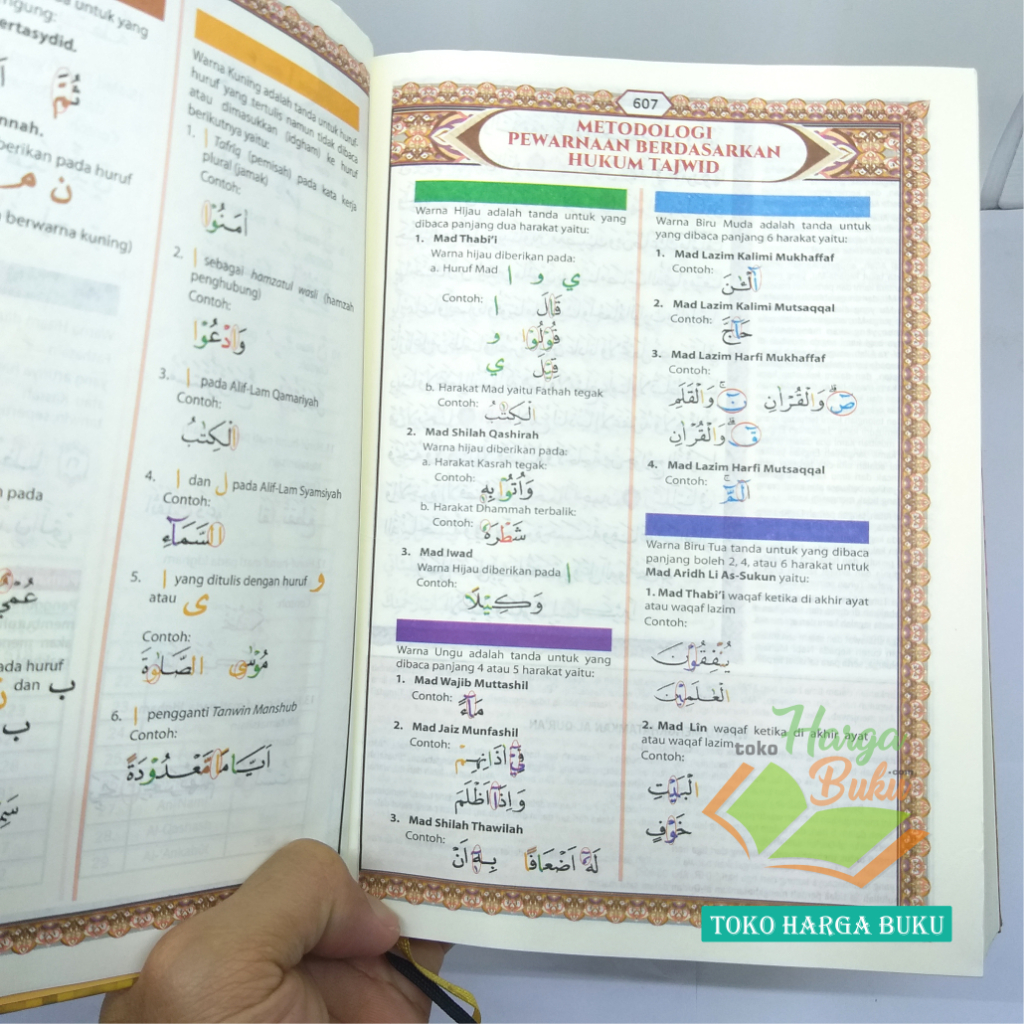 da untuk yang
ertasydid.
ثُمَّ
nnah.
berikan pada huruf
ن م
berwarna kuning)
n pada
ada huruf
dan ب
ب
Warna Kuning adalah tanda untuk huruf-
huruf yang tertulis namun tidak dibaca
atau dimasukkan (idgham) ke huruf
berikutnya yaitu:
1. ا Tofriq (pemisah) pada kata kerja
plural (jamak)
Contoh:
اٰمَنُوْا
2. ا sebagai hamzatul wasil (hamzah
penghubung)
Contoh:
وَادْعُوْا
3. ا pada Alif-Lam Qamariyah
Contoh:
الْكِتٰبُ
4. ا dan ل pada Alif-Lam Syamsiyah
Contoh:
السَّمَاۤءِ
5. ا yang ditulis dengan huruf و
atau ى
Contoh:
مُوْسٰى الصَّلٰوةَ
6. ا pengganti Tanwin Manshub
Contoh:
اَيَّامًا مَّعْدُوْدَةً
607
METODOLOGI
PEWARNAAN BERDASARKAN
HUKUM TAJWID
Warna Hijau adalah tanda untuk yang
dibaca panjang dua harakat yaitu:
1. Mad Thabi'i
Warna hijau diberikan pada:
a. Huruf Mad ا و ي
Contoh: ا قَالَ
و قُوْلُوْا
ي قِيْلَ
b. Harakat Mad yaitu Fathah tegak
Contoh: الْكِتٰبُ
2. Mad Shilah Qashirah
Warna hijau diberikan pada:
a. Harakat Kasrah tegak:
Contoh: وَاُتُوْا بِهٖ
b. Harakat Dhammah terbalik:
Contoh: شَطْرَهٗ
3. Mad Iwad
Warna Hijau diberikan pada ا
Contoh:
وَكِيْلًا
Warna Ungu adalah tanda untuk yang
dibaca panjang 4 atau 5 harakat yaitu:
1. Mad Wajib Muttashil
Contoh: مَاۤءً
2. Mad Jaiz Munfashil
Contoh: فِيْٓ اٰذَانِهِمْ
وَاِذَآ اَظْلَمَ
3. Mad Shilah Thawilah
Contoh: لَهٗٓ اَضْعَافًا بِهٖٓ اَنْ
Warna Biru Muda adalah tanda untuk
yang dibaca panjang 6 harakat yaitu:
1. Mad Lazim Kalimi Mukhaffaf
Contoh: آلْـٰٔنَ
2. Mad Lazim Kalimi Mutsaqqal
Contoh: حَاۤجَّ
3. Mad Lazim Harfi Mukhaffaf
Contoh:
صۤ ۗوَالْقُرْاٰنِ نۤ ۚوَالْقَلَمِ
قۤ ۗوَالْقُرْاٰنِ
4. Mad Lazim Harfi Mutsaqqal
Contoh: الۤمّۤ ۚ
Warna Biru Tua tanda untuk yang dibaca
panjang boleh 2, 4, atau 6 harakat untuk
Mad Aridh Li As-Sukun yaitu:
1. Mad Thabi'i waqaf ketika di akhir ayat
atau waqaf lazim
Contoh:
يُنْفِقُوْنَ
الْعٰلَمِيْنَ
2. Mad Lîn waqaf ketika di akhir ayat
atau waqaf lazim
Contoh:
الْبَيْتِ
خَوْفٍ
toko Harga
Buku .com
TOKO HARGA BUKU